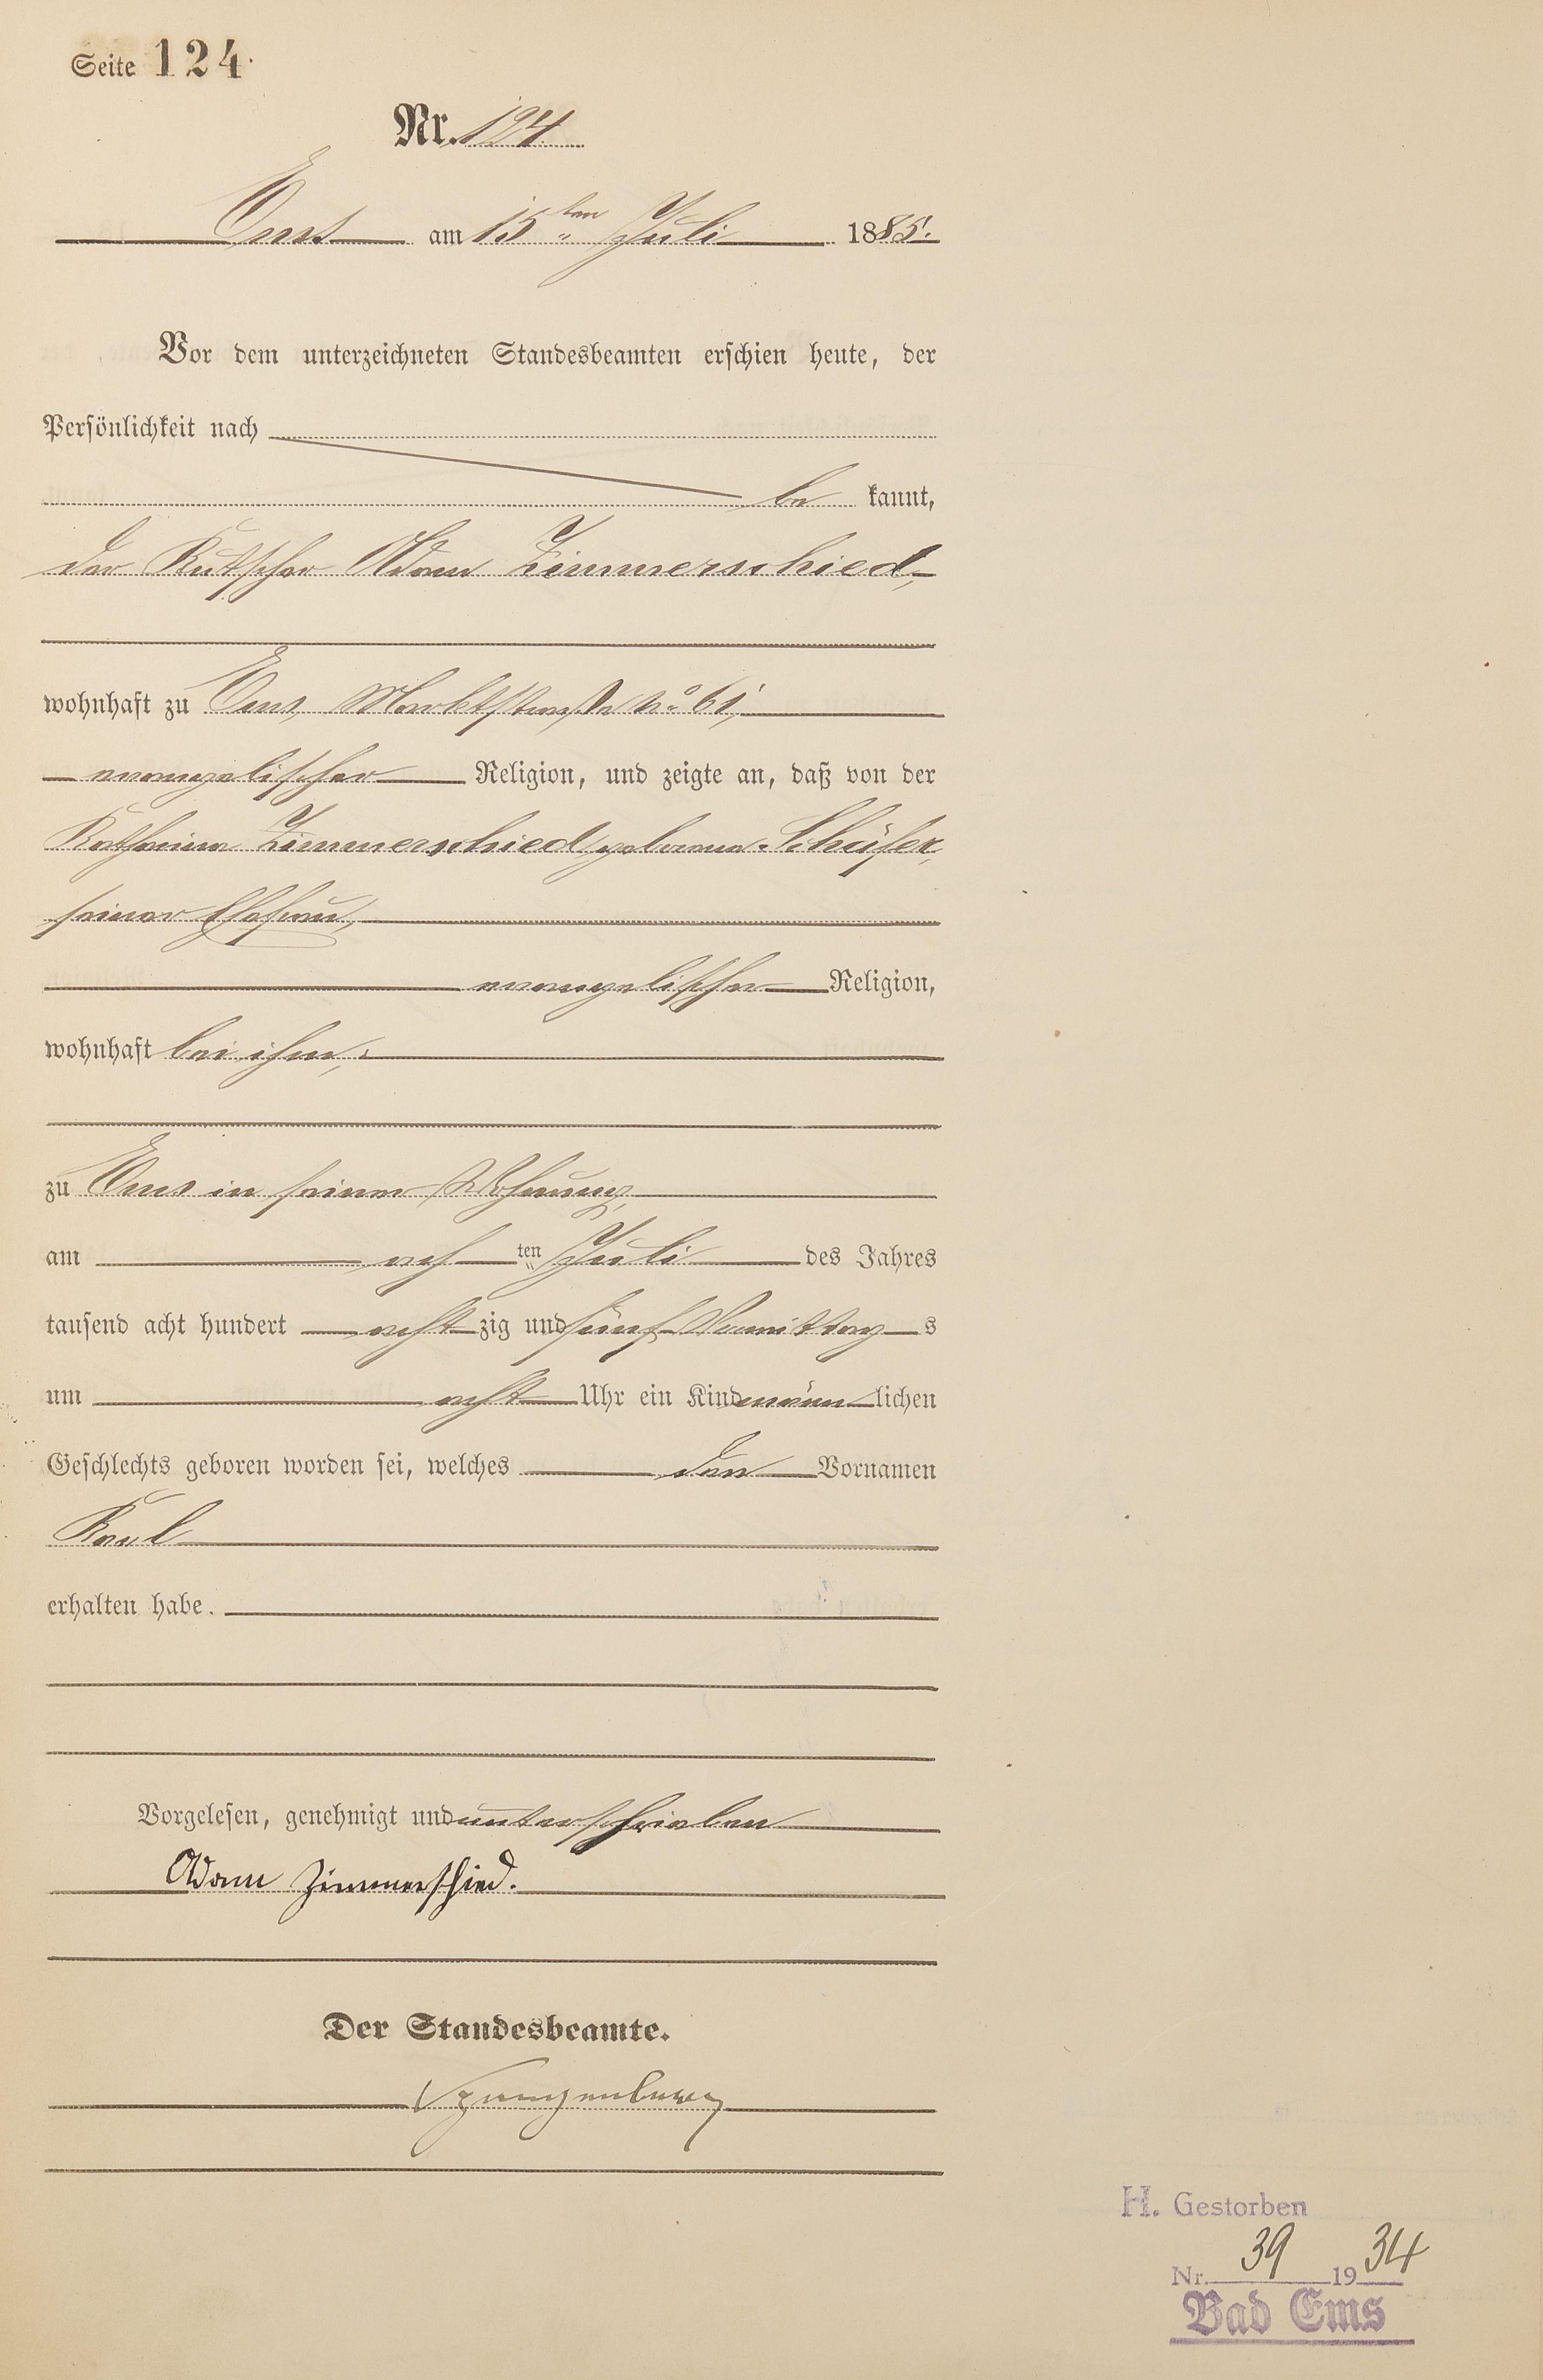 Seite 124.
Nr. 124
Ems am 15ten Juli 1885.
Vor dem unterzeichneten Standesbeamten erschien heute, der
Persönlichkeit nach
be kannt,
der Kutscher Adam Zimmerschied,
wohnhaft zu Ems, Marktstraße No 61,
evangelischer Religion, und zeigte an, daß von der
Katharina Zimmerschied geborenen Schäfer,
seiner Ehefrau,
evangelischer Religion,
wohnhaft bei ihm,
zu Ems in seiner Wohnung,
am ach ten Juli des Jahres
tausend acht hundert acht zig und fünf Vormittag s
um acht Uhr ein Kind männ lichen
Geschlechts geboren worden sei, welches den Vornamen
Karl
erhalten habe.
Vorgelesen, genehmigt und unterschrieben
Adam Zimmerschied.
Der Standesbeamte.
Spangenberg
H. Gestorben
Nr. 39 1934
Bad Ems